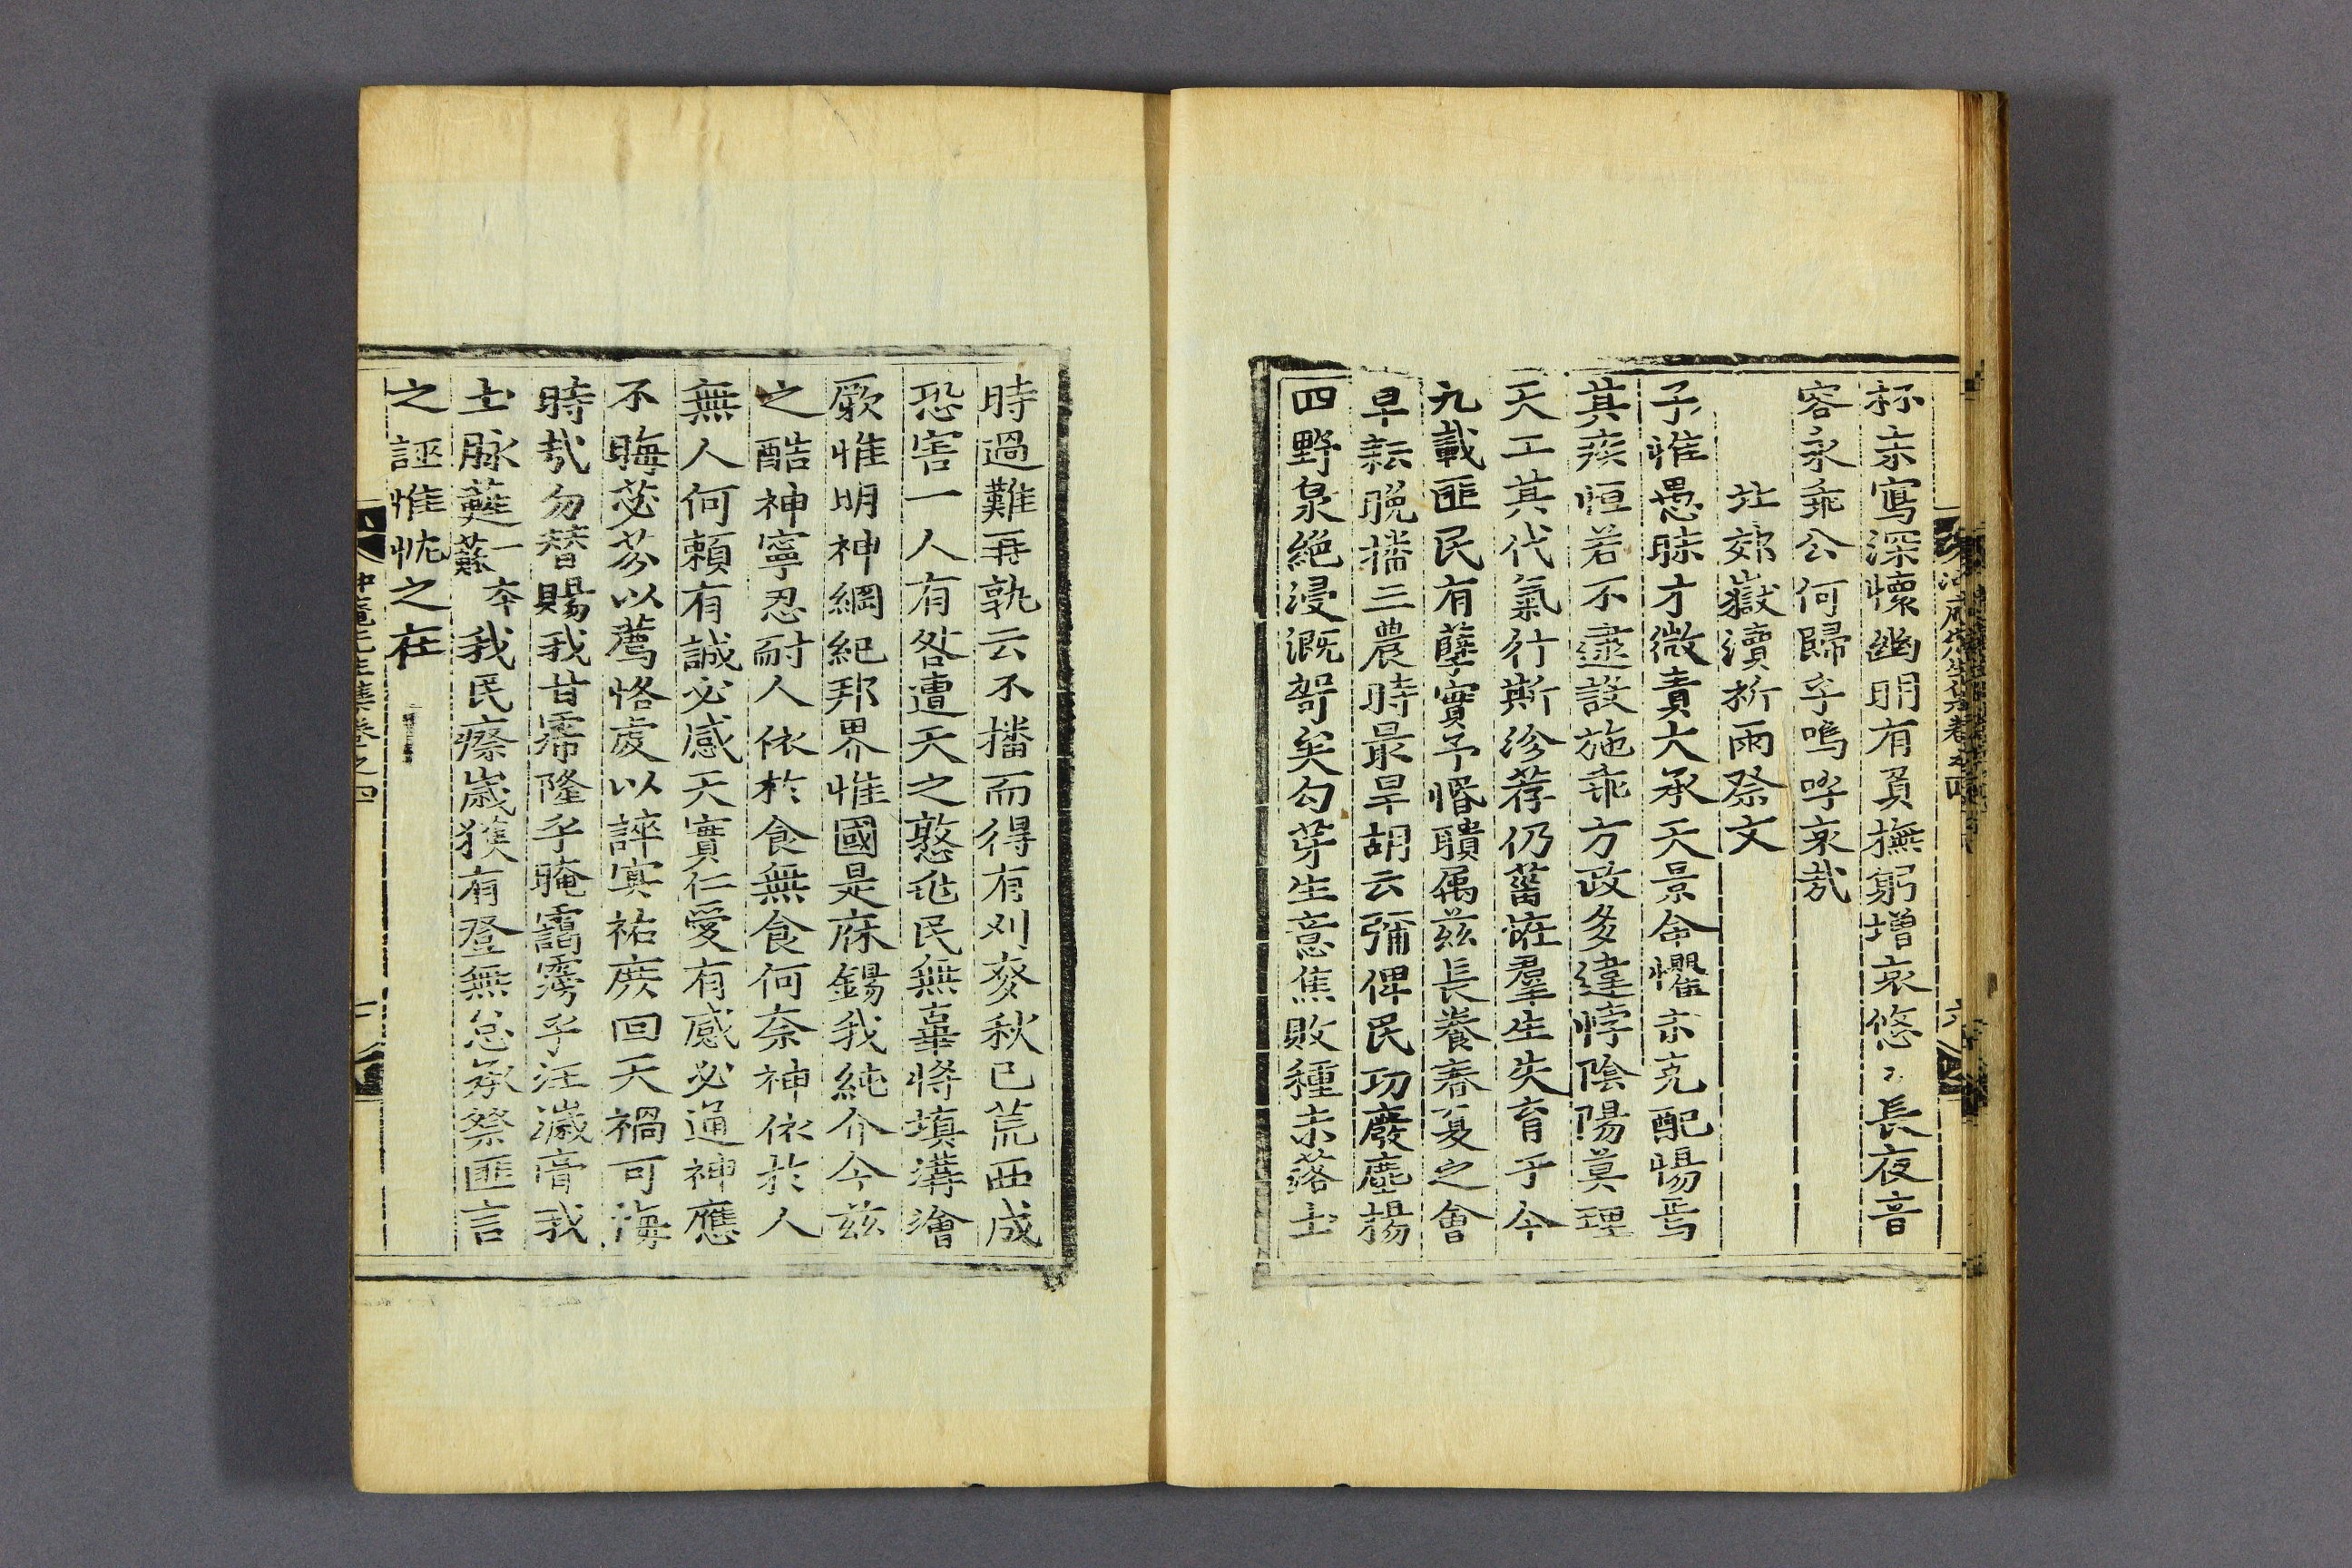 杯示寫深懷幽明有負撫躬增哀悠〻長夜音
容永乖公何歸乎嗚呼哀哉
北郊嶽瀆祈雨祭文
予惟愚昧才微責大承天景命懼亦克配惕焉
其疾恒若不逮設施乖方政多違悖陰陽莫理
天工其代氣行斯沴荐仍菑旤羣生失育乎今
九載匪民有孽實予㬉聵屬兹長養春夏之會
早耘晩播三農時最旱胡云彌俾民功廢塵揚
四野泉絶浸溉哿矣勾芽生意焦敗種未落土
時過難再孰云不播而得有刈麥秋已荒西成
恐害一人有咎遭天之憝民無辜將塡溝澮
厥惟明神綱紀邦界惟國是庥錫我純介今兹
之酷神寧忍耐人依於食無食何奈神依於人
無人何賴有誠必感天實仁愛有感必通神應
不晦苾芬以薦恪虔以誶寘祐庶回天禍可悔
時哉勿替賜我甘霈隆乎晻靄霶乎汪濊膏我
土脉蘓一本蘇我民瘵歲獲有登無怠承祭匪言
之誣惟忱之在
先生集卷之四